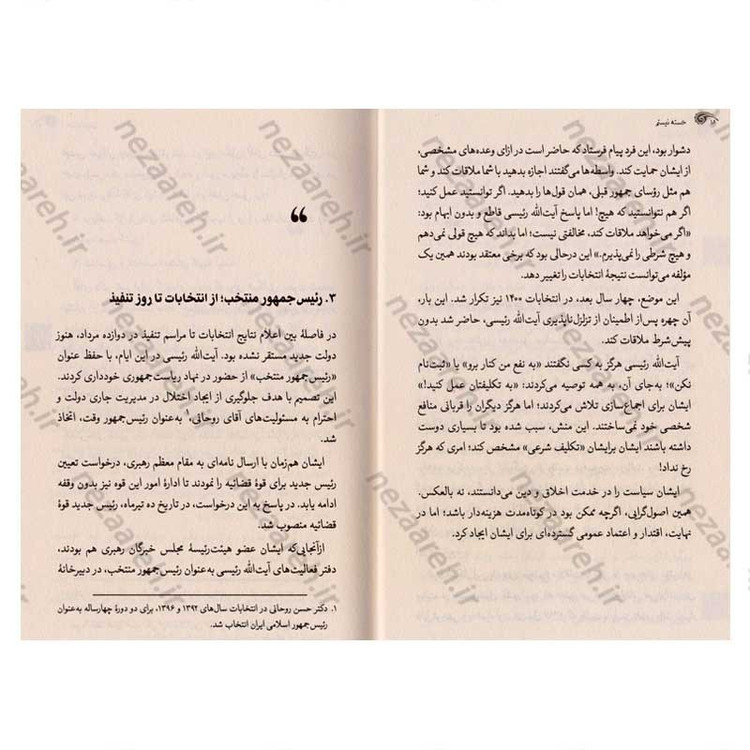 ۱۸ خسته نیستم
دشوار بود، این فرد پیام فرستاد که حاضر است در ازای وعده‌های مشخصی،
از ایشان حمایت کند. واسطه‌ها می‌گفتند اجازه بدهید با شما ملاقات کند و شما
هم مثل رؤسای جمهور قبلی، همان قول‌ها را بدهید. اگر توانستید عمل کنید؛
اگر هم نتوانستید که هیچ! اما پاسخ آیت‌الله رئیسی قاطع و بدون ابهام بود:
«اگر می‌خواهد ملاقات کند، مخالفتی نیست؛ اما بداند که هیچ قولی نمی‌دهم
و هیچ شرطی را نمی‌پذیرم.» این درحالی بود که برخی معتقد بودند همین یک
مؤلفه می‌توانست نتیجهٔ انتخابات را تغییر دهد.
این موضع، چهار سال بعد، در انتخابات ۱۴۰۰ نیز تکرار شد. این بار،
آن چهره پس از اطمینان از تزلزل‌ناپذیری آیت‌الله رئیسی، حاضر شد بدون
پیش‌شرط ملاقات کند.
آیت‌الله رئیسی هرگز به کسی نگفتند «به نفع من کنار برو» یا «ثبت‌نام
نکن»؛ به‌جای آن، به همه توصیه می‌کردند: «به تکلیفتان عمل کنید!»
ایشان برای اجماع‌سازی تلاش می‌کردند؛ اما هرگز دیگران را قربانی منافع
شخصی خود نمی‌ساختند. این منش، سبب شده بود تا بسیاری دوست
داشته باشند ایشان برایشان «تکلیف شرعی» مشخص کند؛ امری که هرگز
رخ نداد!
ایشان سیاست را در خدمت اخلاق و دین می‌دانستند، نه بالعکس.
همین اصول‌گرایی، اگرچه ممکن بود در کوتاه‌مدت هزینه‌دار باشد؛ اما در
نهایت، اقتدار و اعتماد عمومی گسترده‌ای برای ایشان ایجاد کرد.
۳. رئیس‌جمهور منتخب؛ از انتخابات تا روز تنفیذ
در فاصلهٔ بین اعلام نتایج انتخابات تا مراسم تنفیذ در دوازده مرداد، هنوز
دولت جدید مستقر نشده بود. آیت‌الله رئیسی در این ایام، با حفظ عنوان
«رئیس‌جمهور منتخب» از حضور در نهاد ریاست‌جمهوری خودداری کردند.
این تصمیم با هدف جلوگیری از ایجاد اختلال در مدیریت جاری دولت و
احترام به مسئولیت‌های آقای روحانی، به‌عنوان رئیس‌جمهور وقت، اتخاذ
شد.
ایشان هم‌زمان با ارسال نامه‌ای به مقام معظم رهبری، درخواست تعیین
رئیس جدید برای قوهٔ قضائیه را نمودند تا ادارهٔ امور این قوه نیز بدون وقفه
ادامه یابد. در پاسخ به این درخواست، در تاریخ ده تیرماه، رئیس جدید قوهٔ
قضائیه منصوب شد.
ازآنجایی‌که ایشان عضو هیئت‌رئیسهٔ مجلس خبرگان رهبری هم بودند،
دفتر فعالیت‌های آیت‌الله رئیسی به‌عنوان رئیس‌جمهور منتخب، در دبیرخانهٔ
۱. دکتر حسن روحانی در انتخابات سال‌های ۱۳۹۲ و ۱۳۹۶، برای دو دورهٔ چهارساله به‌عنوان
رئیس‌جمهور اسلامی ایران انتخاب شد.
nezaareh.ir